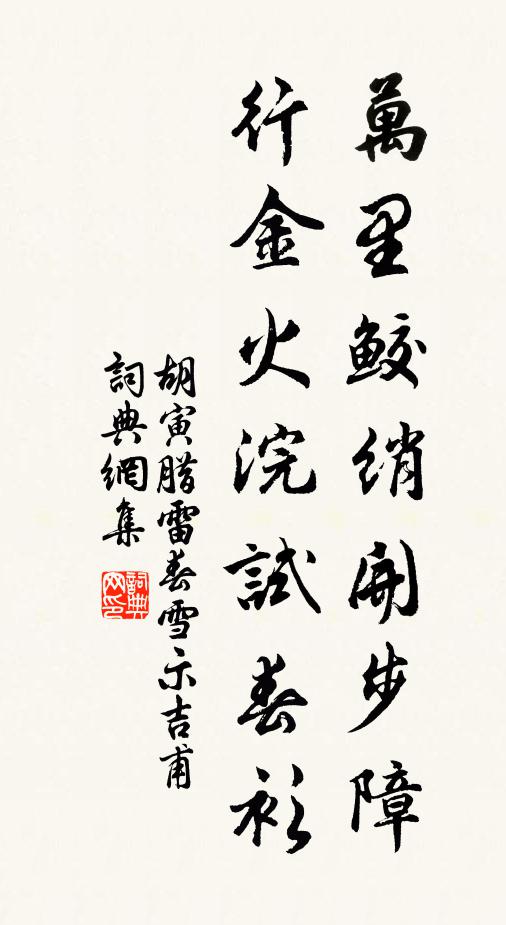 萬里鮫綃開步障
行金火浣試春衫
胡寅腊雷春雪示吉甫
詞典網集
詞典网印